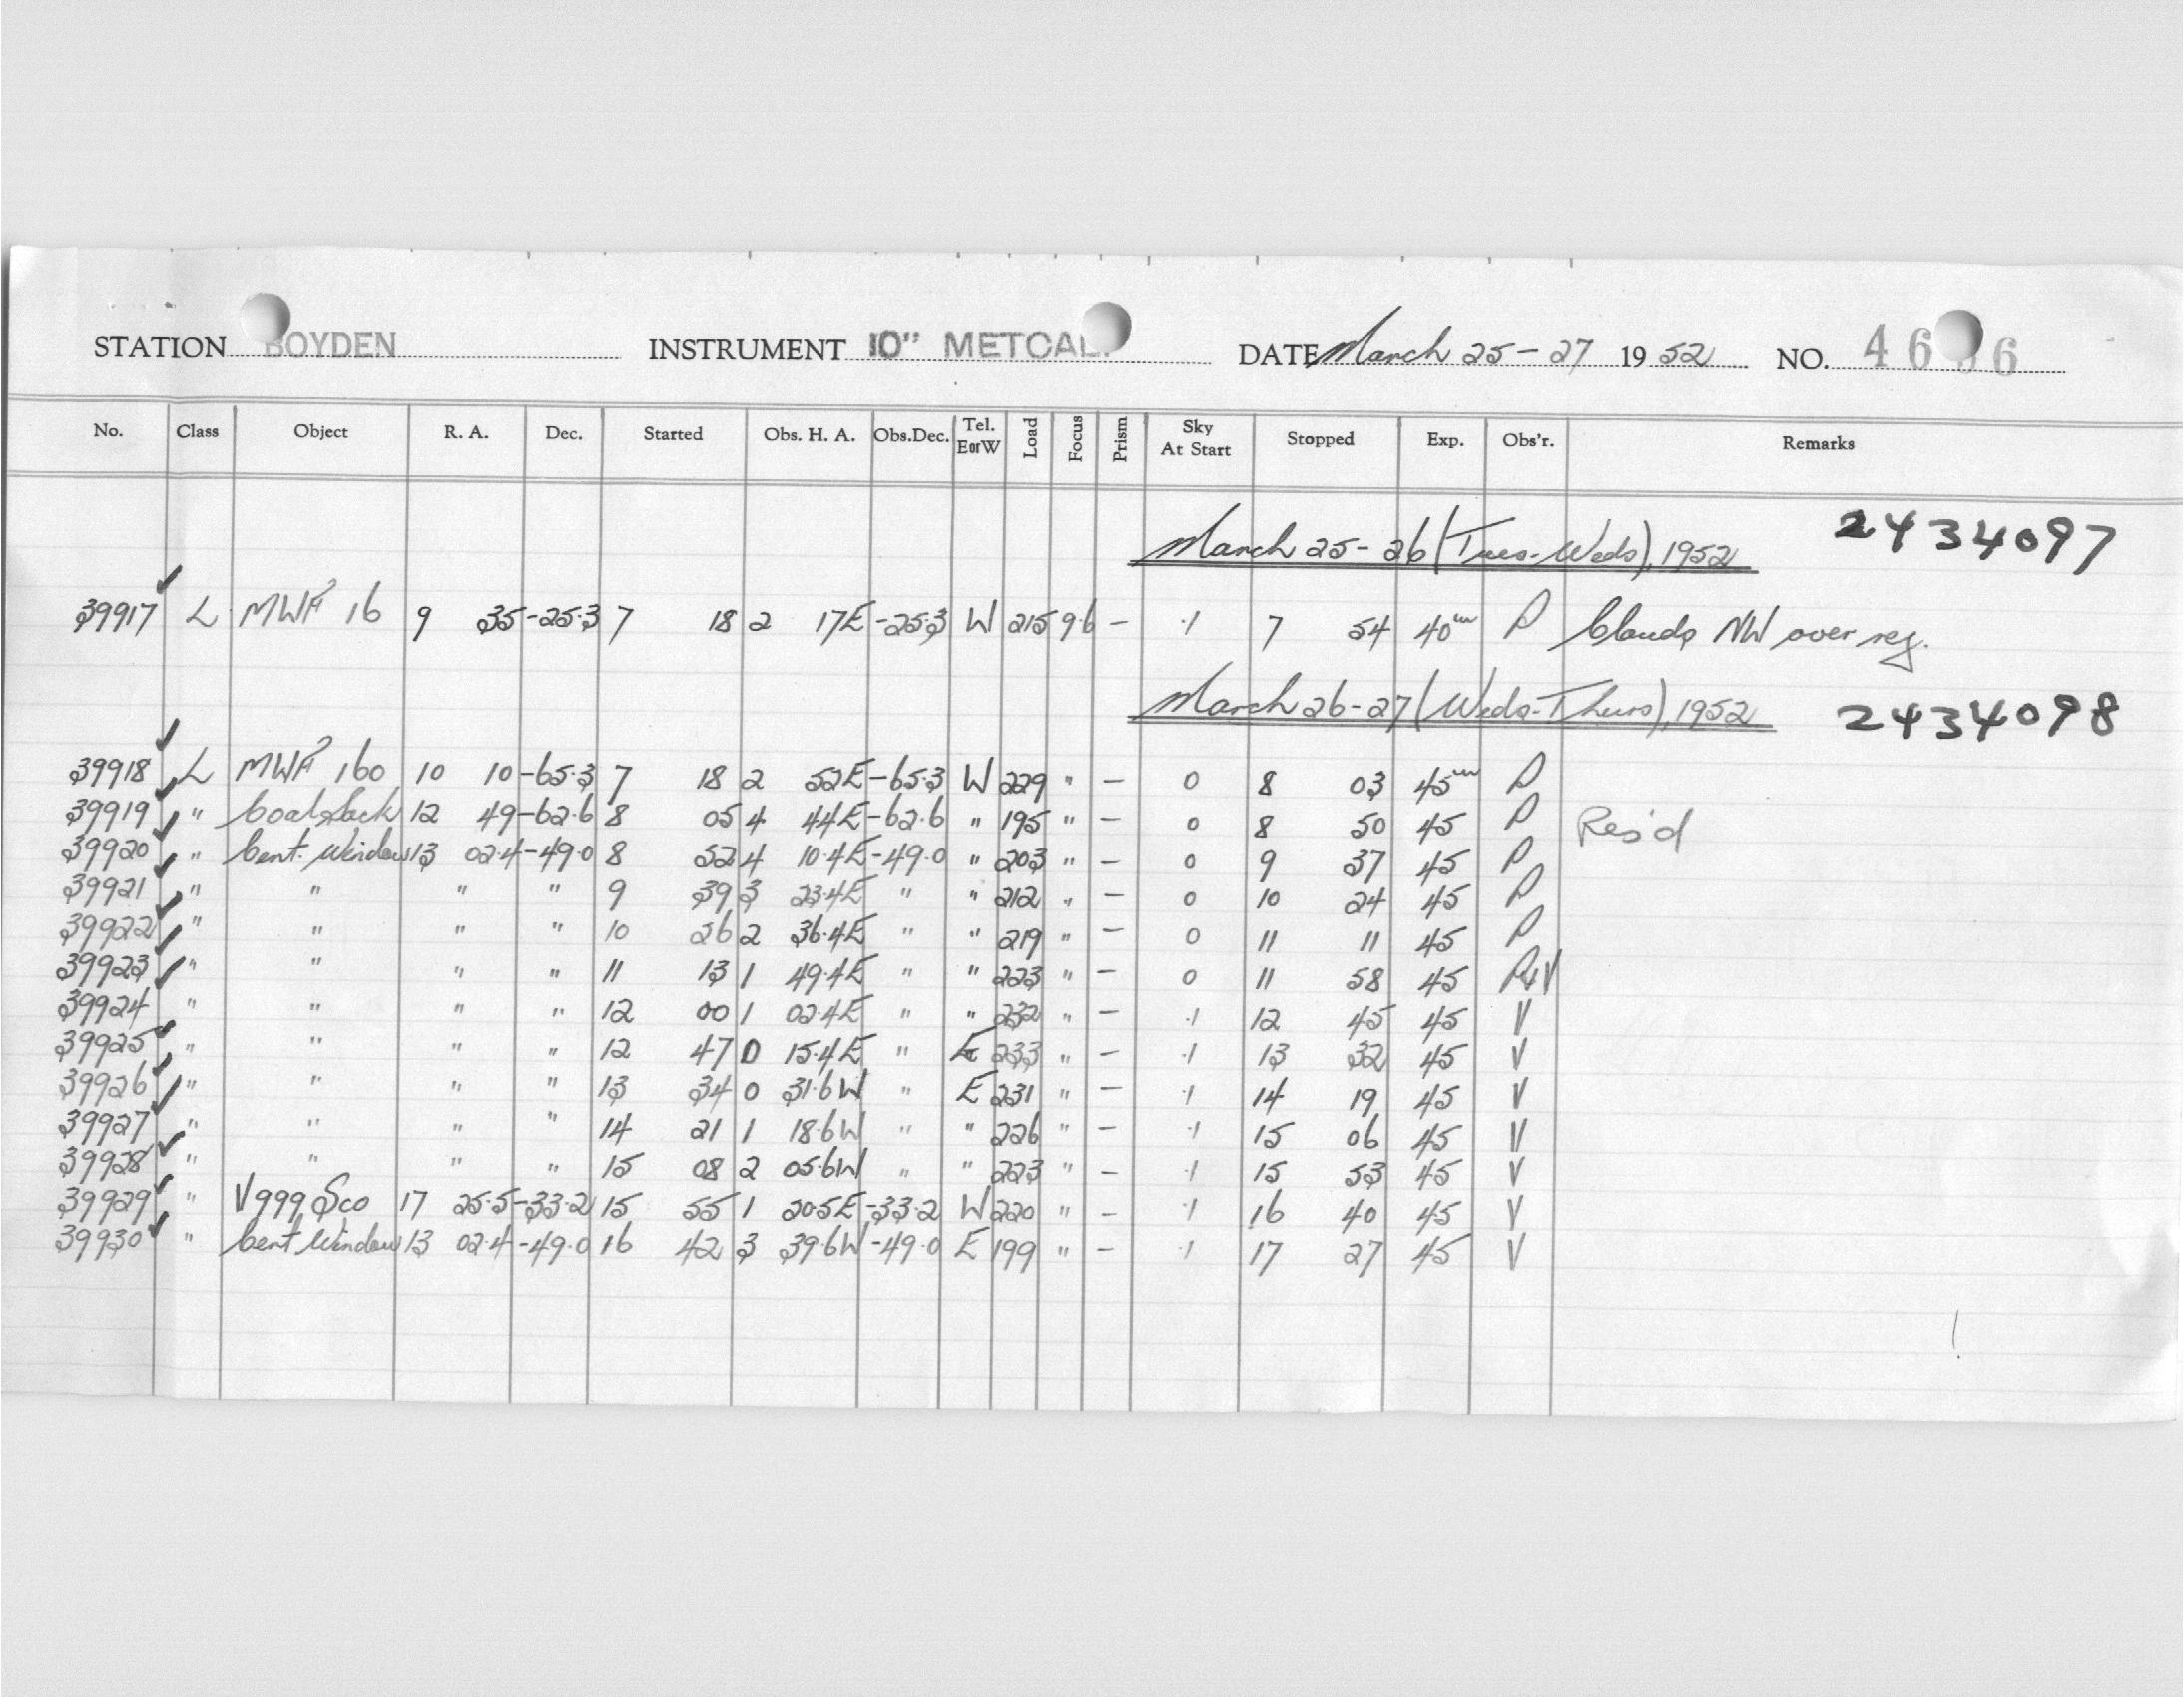 STATION BOYDEN INSTRUMENT 10" METCALF DATE March 25-27 1952 NO.
No. Class Object R. A. Dec. Started Obs. H. A. Obs.Dec. Tel. EorW Load Focus Prism Sky At Start Stopped Exp. Obs'r. Remarks
March 25-26 (Tues-Weds), 1952 2434097
39917 L MWF 16 9 35 -25.3 7 18 2 17E -25.3 W 215 9.6 - .1 7 54 40m P Clouds NW over reg.
March 26-27 (Weds-Thurs), 1952 2434098
39918 L MWF 160 10 10 -65.3 7 18 2 52E -65.3 W 229 " - 0 8 03 45m P
39919 " Coalsack 12 49 -62.6 8 05 4 44E -62.6 " 195 " - 0 8 50 45 P Res'd
39920 " Cent. Window 13 02.4 -49.0 8 52 4 10.4E -49.0 " 203 " - 0 9 37 45 P
39921 " " " " 9 39 3 23.4E " " 212 " - 0 10 24 45 P
39922 " " " " 10 26 2 36.4E " " 219 " - 0 11 11 45 P
39923 " " " " 11 13 1 49.4E " " 223 " - 0 11 58 45 P+V
39924 " " " " 12 00 1 02.4E " " 232 " - .1 12 45 45 V
39925 " " " " 12 47 0 15.4E " E 233 " - .1 13 32 45 V
39926 " " " " 13 34 0 31.6W " E 231 " - .1 14 19 45 V
39927 " " " " 14 21 1 18.6W " " 226 " - .1 15 06 45 V
39928 " " " " 15 08 2 05.6W " " 223 " - .1 15 53 45 V
39929 " V999 Sco 17 25.5 -33.2 15 55 1 20.5E -33.2 W 220 " - .1 16 40 45 V
39930 " Cent Window 13 02.4 -49.0 16 42 3 39.6W -49.0 E 199 " - .1 17 27 45 V